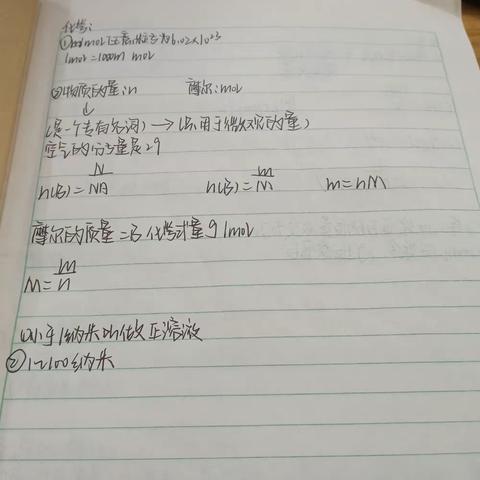 化学:
①1mol任意微粒数为6.02×10²³
1mol=1000m mol
②物质的量:n 摩尔:mol
↓
(是一个专有名词)→(只用于微观的量)
空气的分子量是29
n(B)=N/NA n(B)=m/M m=nM
摩尔的质量=B化学计量g/mol
M=m/n
①小于1纳米叫做正溶液
②1~100纳米